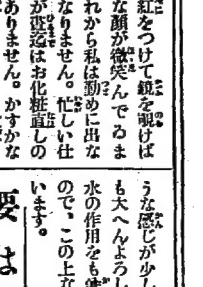 紅をつけて鏡を覗けば
な顔が微笑んでゐま
れから私は勤めに出な
なりません。忙しい仕
が濟迄はお化粧直しの
ありません。かすかな
うな感じが少し
も大へんよろし
水の作用をも
ので、この上な
います。
要は